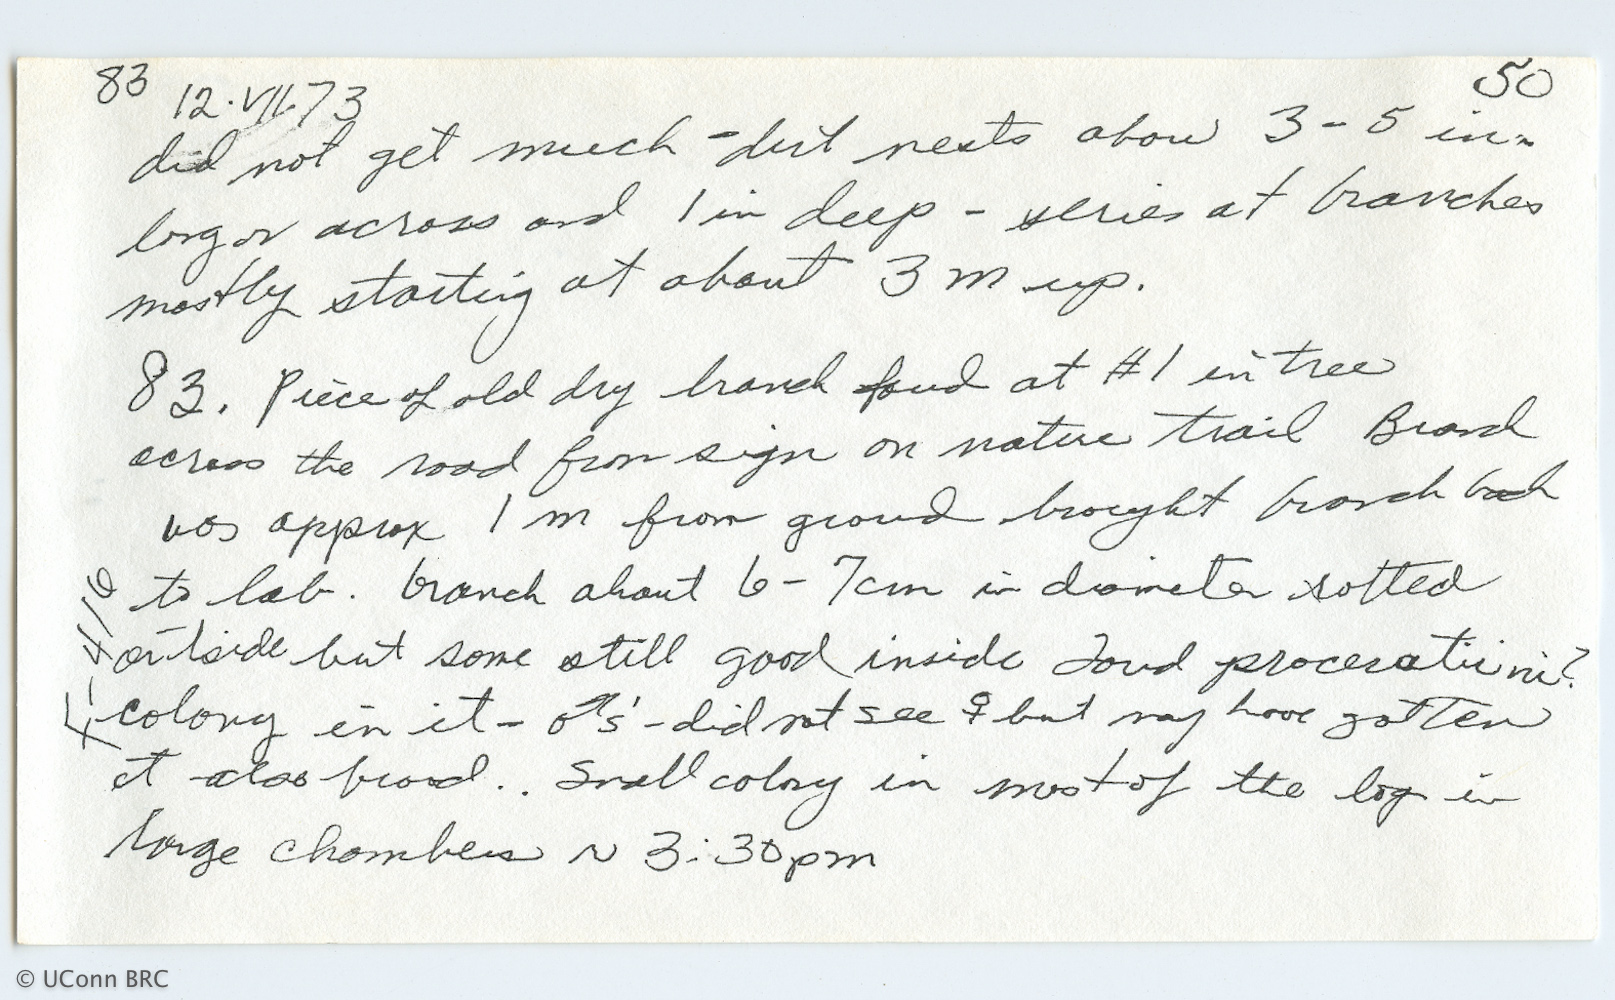 83 12·VII·73 50
did not get much - dirt nests about 3-5 in.
long or across and 1 in deep - series at branches
mostly starting at about 3 m up.
83. Piece of old dry branch found at #1 in tree
across the road from sign on nature trail Branch
was approx 1 m from ground brought branch back
to lab. branch about 6-7cm in diameter rotted
outside but some still good inside Found
colony in it - did not see ♀ but may have gotten
it also brood.. Small colony in most of the log in
large chambers ~ 3:30pm
© UConn BRC